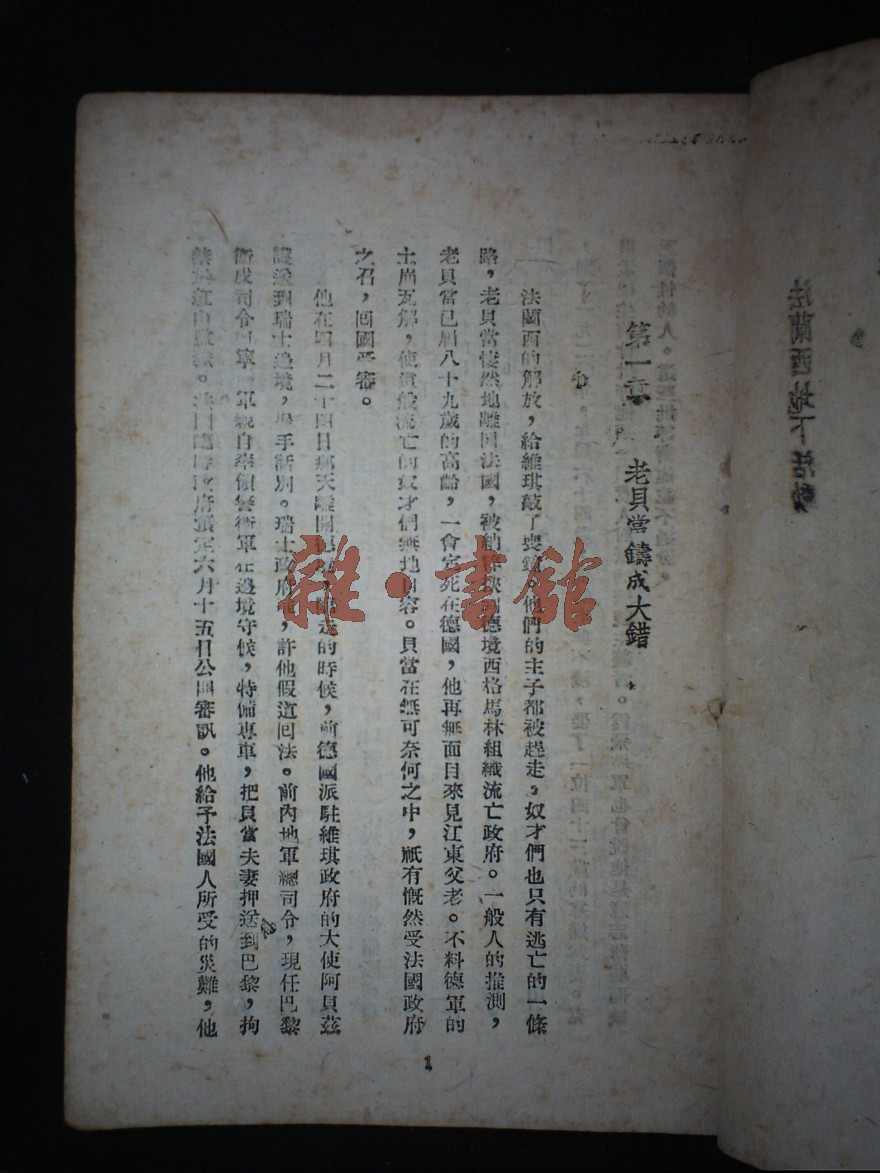 法蘭西地下活動
第一章 老貝當鑄成大錯
法蘭西的解放，給維琪敲了喪鐘。他們的主子都被趕走，奴才們也只有逃亡的一條
路，老貝當悽然地離回法國，被納德境西格馬林組織流亡政府。一般人的推測，
老貝當已屆八十九歲的高齡，一會客死在德國，他再無面目來見江東父老。不料德軍的
土崩瓦解，使這般流亡的奴才們無地自容。貝當在無可奈何之中，祇有慨然受法國政府
之召，回國受審。
他在四月二十四日那天離開德，的時候，前德國派駐維琪政府的大使阿貝茲
護送到瑞士邊境，握手話別。瑞士政府，許他假道回法。前內地軍總司令，現任巴黎
衛戍司令將軍親自率領衛軍在邊境守候，特備專車，把貝當夫妻押送到巴黎，拘
政府決定六月十五日公開審訊。他給予法國人所受的災難，他
1
雜·書館